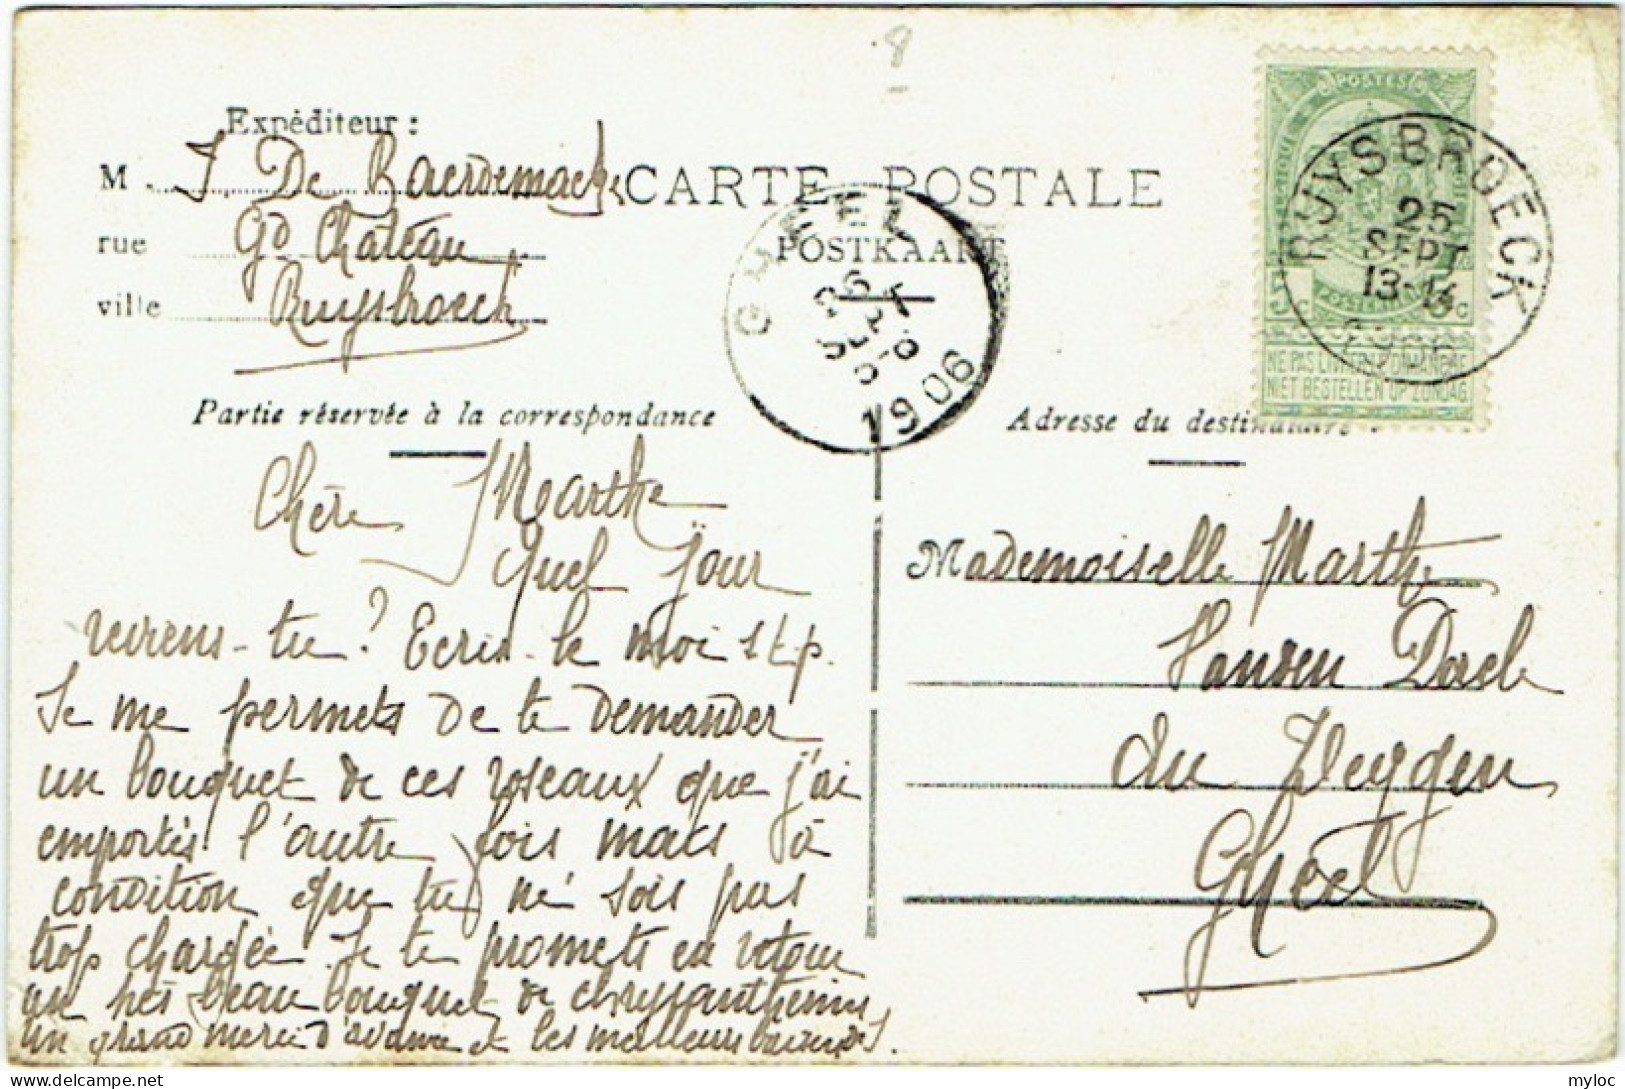 Expéditeur :
M J De Raerdemacker
rue Gd Château
ville Ruysbroeck
CARTE POSTALE
POSTKAART
GHEEL
26
SEPT
1906
POSTES
RUYSBROECK
25
SEPT
13-14
1906
5 C
NE PAS LIVRER LE DIMANCHE
NIET BESTELLEN OP ZONDAG
Partie réservée à la correspondance
Adresse du destinataire
Chère Marthe
Quel jour
reviens-tu? Ecris-le moi s t.p.
Je me permets de te demander
un bouquet de ces roseaux que j'ai
emportés l'autre fois mais à
condition que tu ne sois pas
trop chargée. Je te promets en retour
un très beau bouquet de chrysanthèmes
Un grand merci d'avance et les meilleurs baisers de J.
Mademoiselle Marthe
Hansen
du
Gheel
myloc